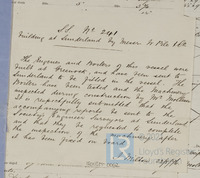 S.S. No 241
Building at Sunderland by Messrs
The Engines and Boilers of this vessel were
built at Greenock, and have been sent to
Sunderland to be fitted in the vessel. The
Boilers have been tested and the Machinery
inspected during construction by Mr Mollison
It is respectfully submitted that the
accompanying reports be sent to the
Society's Surveyors at Sunderland
and that they be requested to complete
the inspection of the machinery after
it has been fitted on board
Lloyd's Register